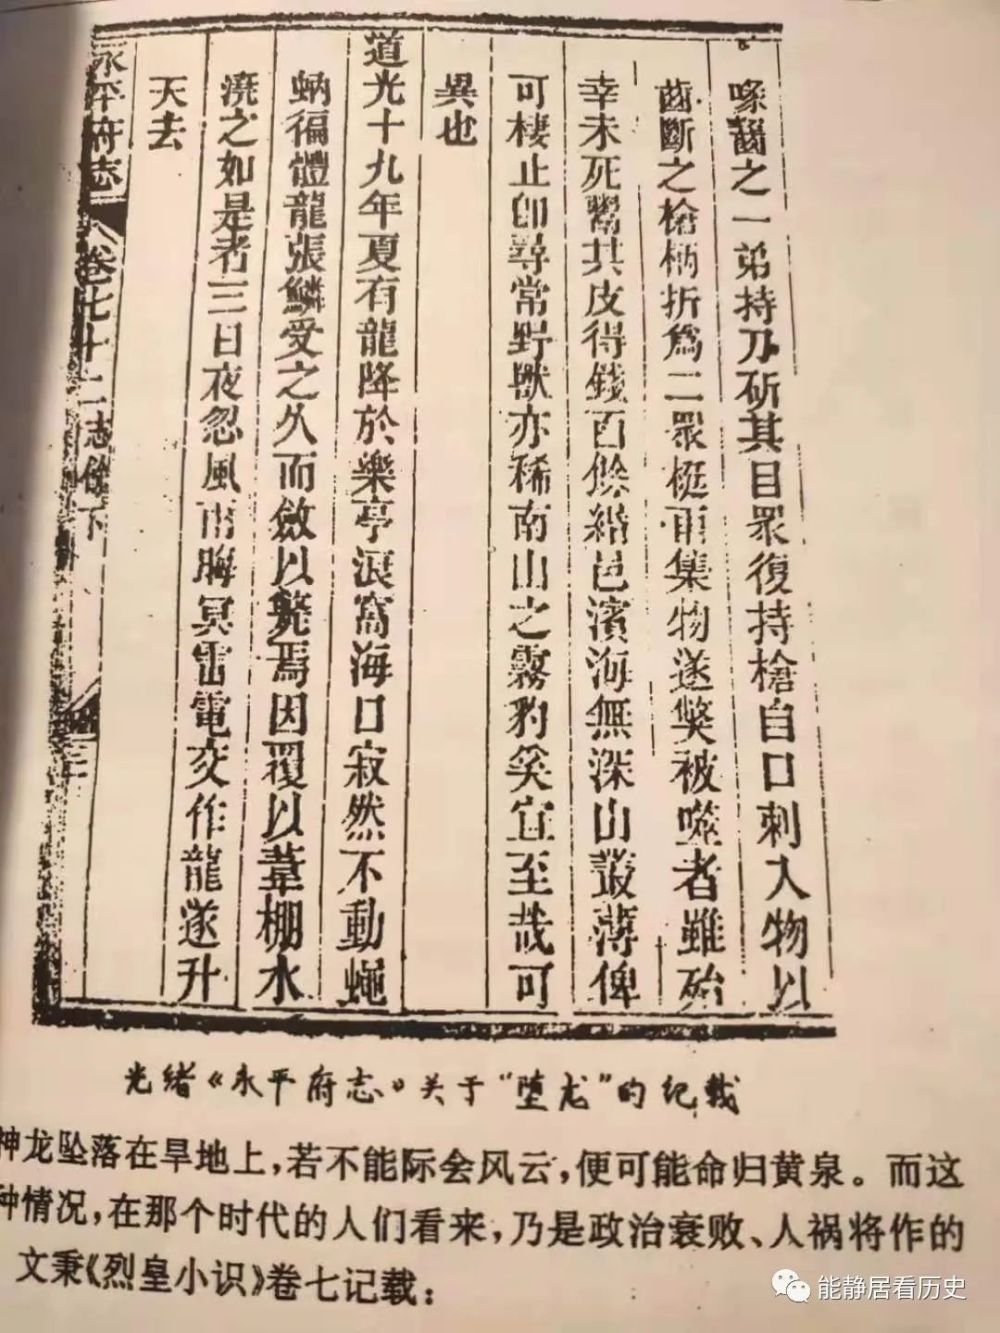 喙齧之一弟持刀斫其目眾復持槍自口刺入物以
齒斷之槍柄折爲二眾梃雨集物遂斃被噬者雖殆
幸未死鬻其皮得錢百餘緡邑濱海無深山叢薄俾
可棲止卽尋常野獸亦稀南山之霧豹奚宜至哉可
異也
道光十九年夏有龍降於樂亭浪窩海口寂然不動蠅
蚋徧體龍張鱗受之久而斂以斃焉因覆以葦棚水
澆之如是者三日夜忽風雨晦冥雷電交作龍遂升
天去
永平府志 卷七十二志餘下
光绪《永平府志》关于“堕龙”的纪载
神龙坠落在旱地上,若不能际会风云,便可能命归黄泉。而这
种情况,在那个时代的人们看来,乃是政治衰败、人祸将作的
文秉《烈皇小识》卷七记载:
能静居看历史